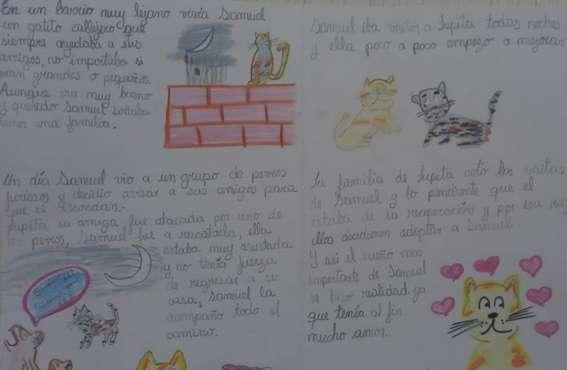 En un barrio muy lejano vivía Samuel
un gatito callejero que
siempre ayudaba a sus
amigos, no importaba si
eran grandes o pequeños.
Aunque era muy bueno
y querido Samuel soñaba
tener una familia.
Un día Samuel vio a un grupo de perros
furiosos y decidió avisar a sus amigos para
que se escondan.
Lupita su amiga, fue atacada por uno de
los perros, Samuel fue a rescatarla, ella
estaba muy asustada
y no tenía fuerza
de regresar a su
casa, Samuel la
acompaño todo el
camino.
Samuel iba visitar a Lupita todas noches
y ella poco a poco empezo a mejorar
La familia de Lupita noto las visitas
de Samuel y lo pendiente que el
estaba de su recuperación y por eso
ellos decidieron adoptar a Samuel
Y así el sueño mas
importante de Samuel
se hizo realidad ya
que tenía al fin
mucho amor.